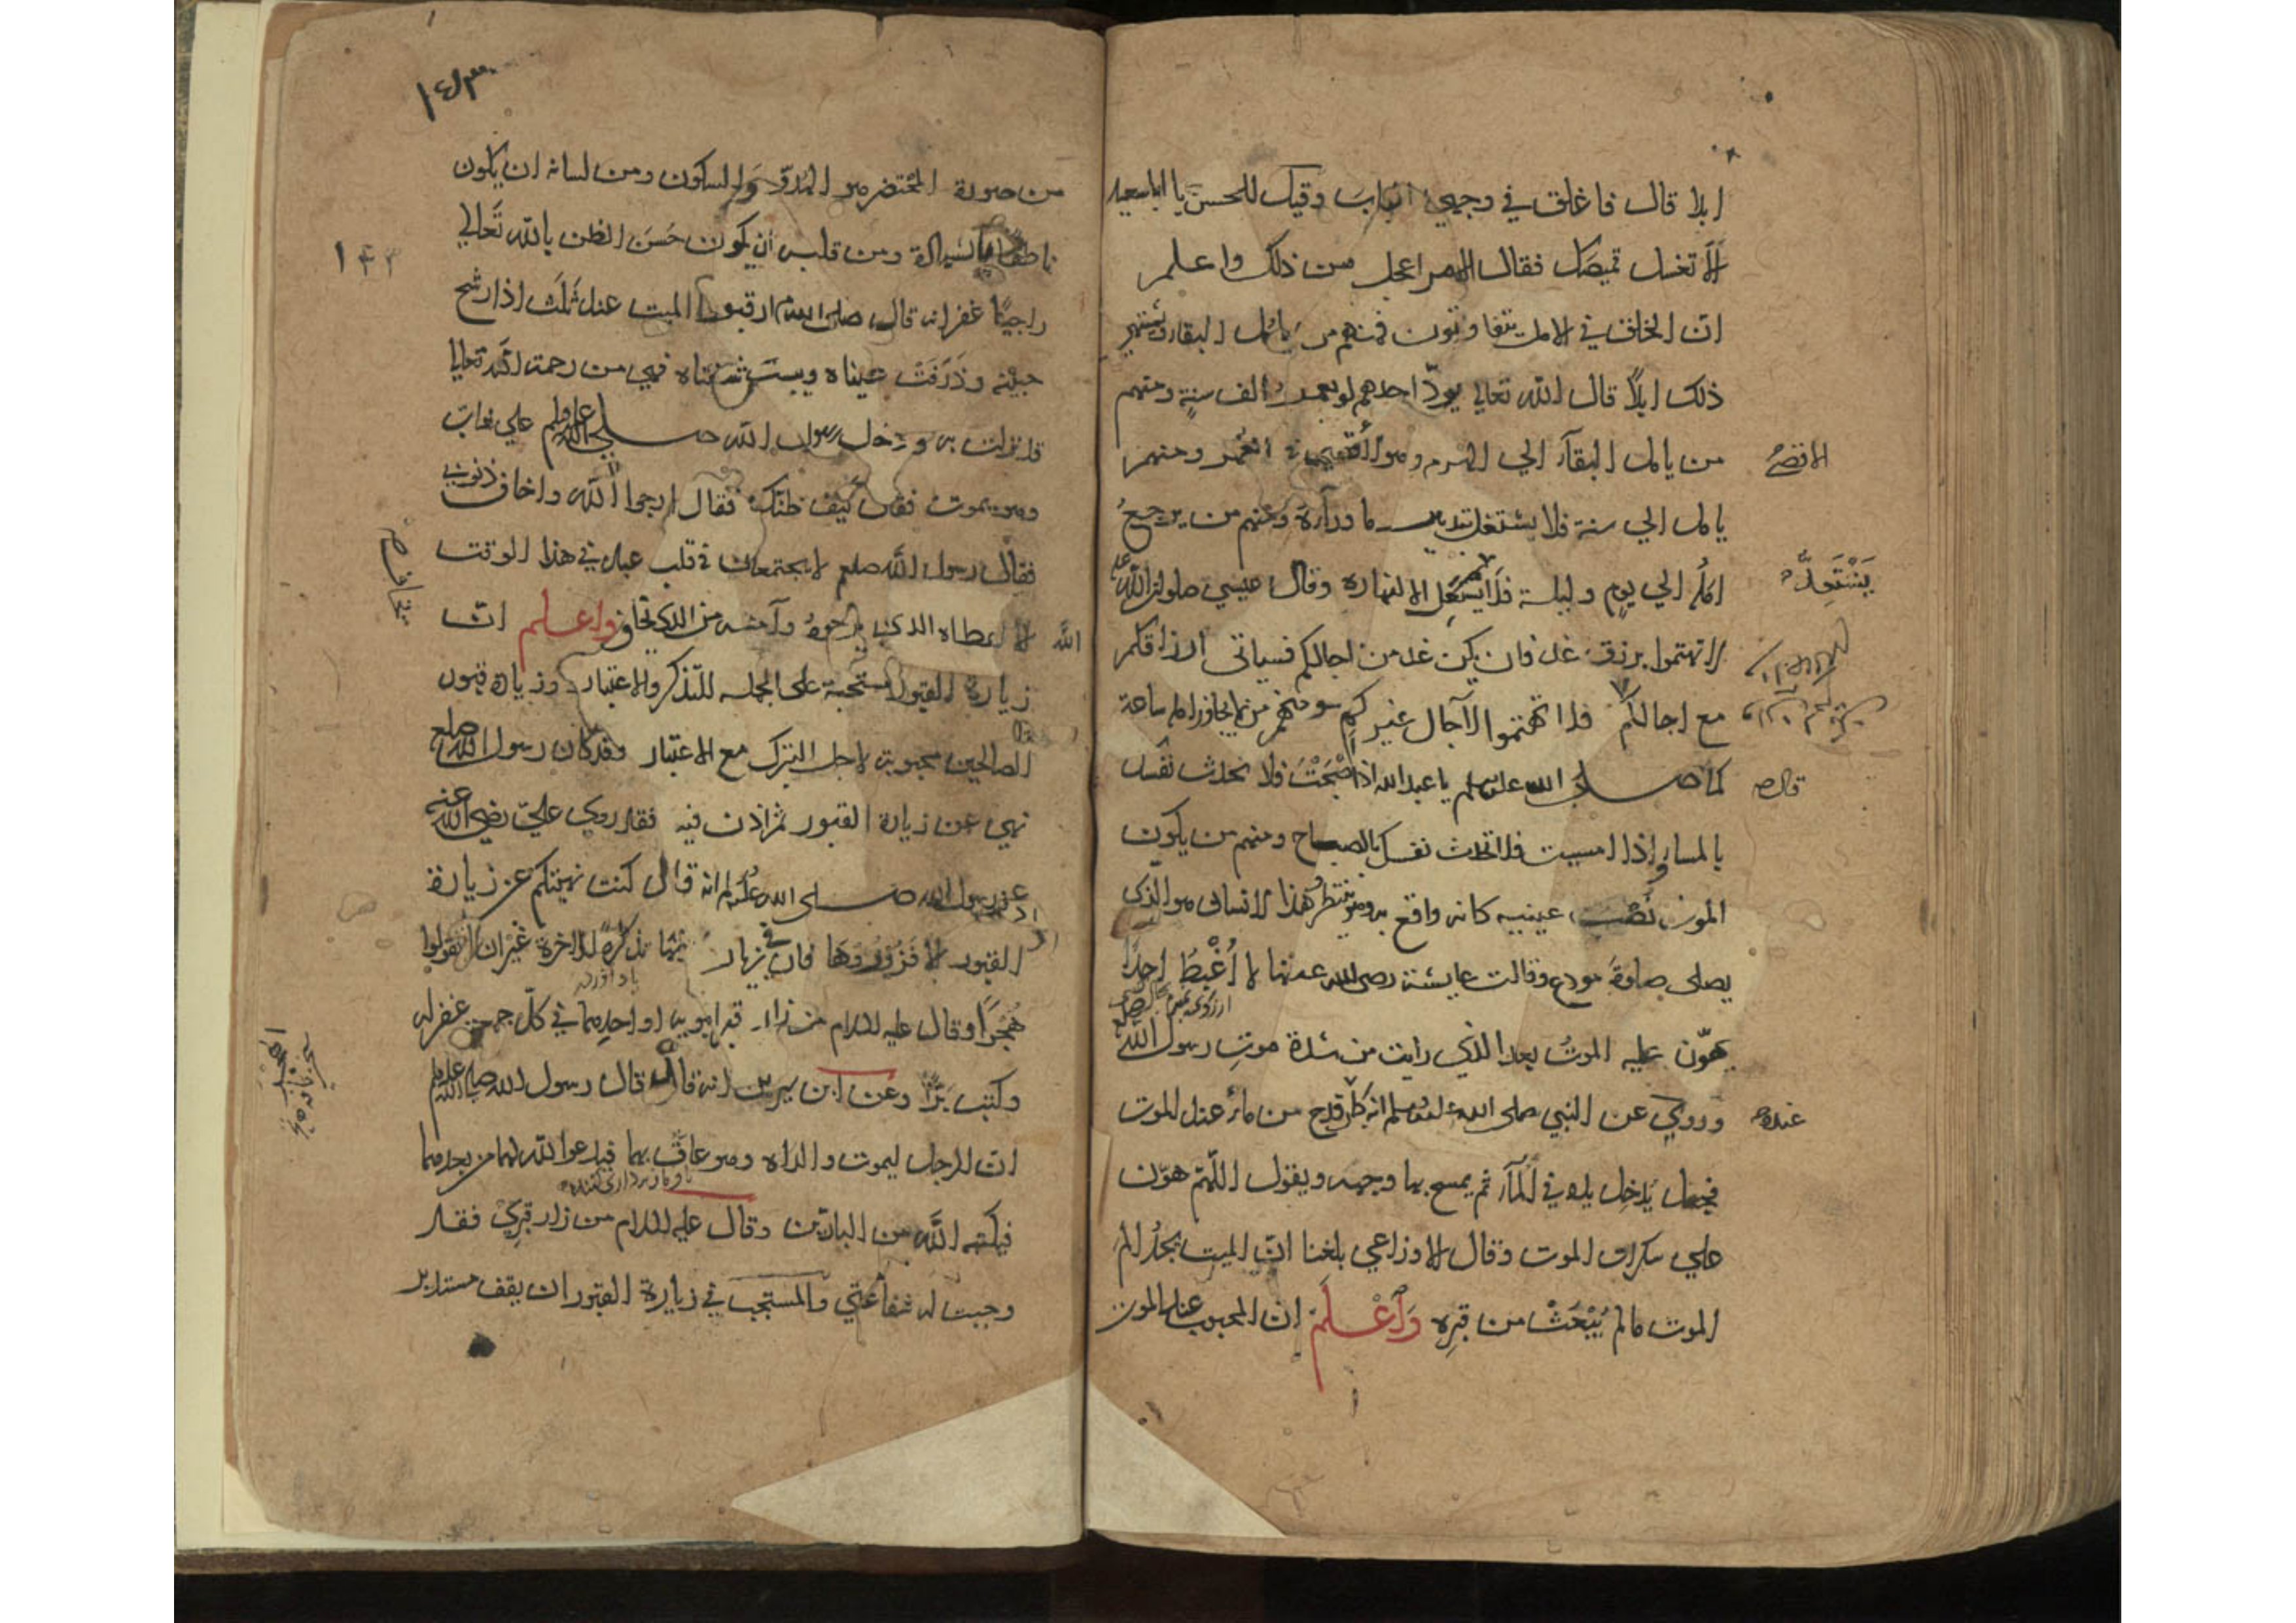 ابدا قال فاغلق في وجهي الباب وقيل للحسن يا ابا سعيد
ألا تغسل قميصك فقال الامر اعجل من ذلك واعلم
ان الخلق في الامل يتفاوتون فمنهم من يامل البقا ويشتهي
ذلك ابدًا قال الله تعالي يودّ احدهم لو يعمر الف سنةٍ ومنهم
من يامل البقآء الي الهرم وهو أقصي العمر ومنهم
الاقصي
يامل الي سنة فلا يشتغل بتدبير ما ورآءه ومنهم من يرجعُ
امله الي يومٍ وليلة فلا يستعد الا لنهاره وقال عيسي صلوات الله عليه
يَسْتَعِدُّ
لا تهتموا برزق غد فان يكن غد من اجالكم فسياتي ارزاقكم
مع اجالكم فلا تهتموا لآجال غيركم ومنهم من لا يجاوز امله ساعة
كما صلي الله عليه وسلم يا عبد الله اذا اصْبَحْتَ فلا تحدث نفسك
قال
بالمسا واذا امسيت فلا تحدث نفسك بالصباح ومنهم من يكون
الموت نُصْبَ عينيه كانه واقع به وهو ينتظره هذا الانسان هو الّذي
يصلي صلوةَ مودع وقالت عايشة رضي الله عنها لا أَغْبِطُ احدًا
يهوّن عليه الموتُ بعد الذي رايت من شدة موتِ رسول الله
وروي عن النبي صلي الله عليه وسلم انه كان قدح من ماء عند الموت
عنده
فجعل يُدخِل يده في المآء ثم يمسح بها وجهه ويقول اللّهم هوّن
علي سكرات الموت وقال الاوزاعي بلغنا انّ الميت يجدُ الم
الموت ما لم يُبْعَثْ من قبرِه وَاعْلَمْ ان المحبوب عند الموت
١٤٣
من صورة المحتضر هو الهُدوّ وَالسكون ومن لسانه ان يكون
ناطقًا بالشهادة ومن قلبه أن يكون حُسَنَ الظن بالله تَعَالي
١٤٣
راجيًا غفرانه قال صلي الله ارقبوا الميت عند ثَلَث اذا رشح
جبينه وذَرَفَتْ عيناه ويبست شفتاه فهي من رحمة الله تعالي
قد نزلت به ودخل رسول الله صلي الله عليه وسلم علي شاب
وهو يموت فقال كيف ظنّك فقال ارجوا الله واخاف ذنوبي
فقال رسول الله صلعم لا يجتمعان في قلب عبد في هذا الوقت
الا اعطاه الله الذي يرجوه وآمنه من الذي يخاف واعلم انّ
زيارة القبور مستحبة علي الجملة للتذكر والاعتبار وزيارة قبور
الصالحين محبوبة لاجل التبرك مع الاعتبار وقد كان رسول الله صلعم
نهي عن زيارة القبور ثم اذن فيه فقد روي عليّ رضي الله عنه
عن رسول الله صلي الله عليه وسلم انه قال كنت نهيتكم عن زيارة
القبور الا فَزُورُوهَا فان في زيارتها تذكرةً للاخرة غير ان لا تقولوا
هُجْرًا وقال عليه السلام من زار قبر ابويه او احدهما في كلّ جمعة غفر له
وكُتب بَرًّا وعن ابن سيرين انه قال قال رسول الله صلي الله عليه وسلم
انّ الرجل ليموت والداه وهو عاقّ بهما فيدعوا الله لهما من بعدهما
فيكتبه الله من البارّين وقال عليه السلام من زار قبرِيْ فقد
وجبت له شفاعتي والمستحب في زيارة القبور ان يقف مستدبر